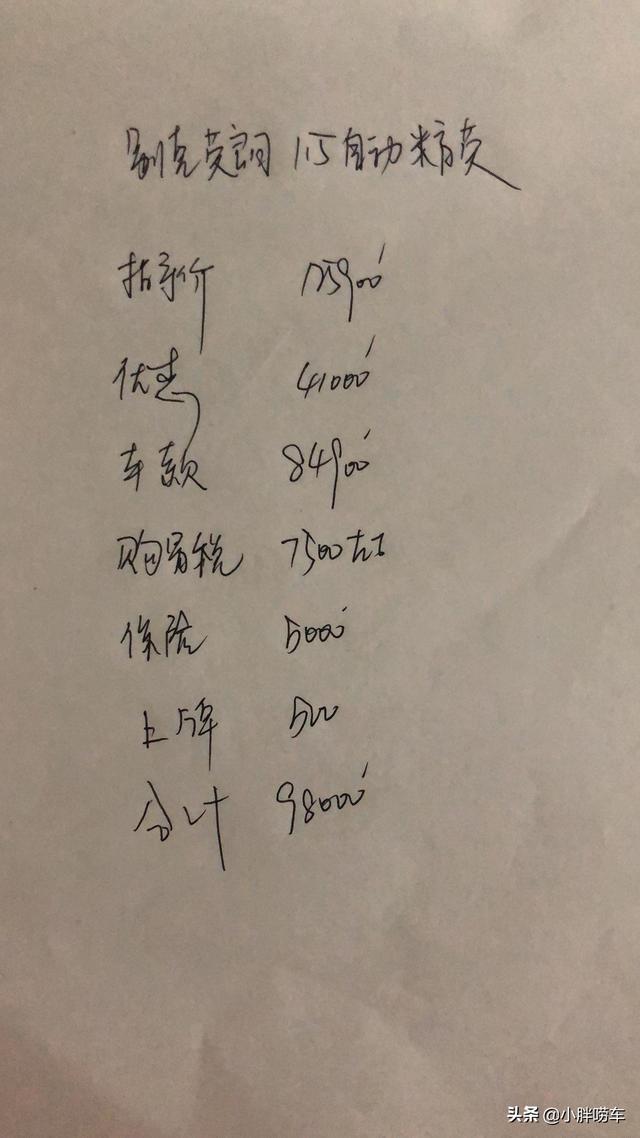 别克英朗 1.5自动精英
指导价 125900
优惠 41000
车款 84900
购置税 7500左右
保险 5000
上牌 500
合计 98000
头条 @小胖唠车